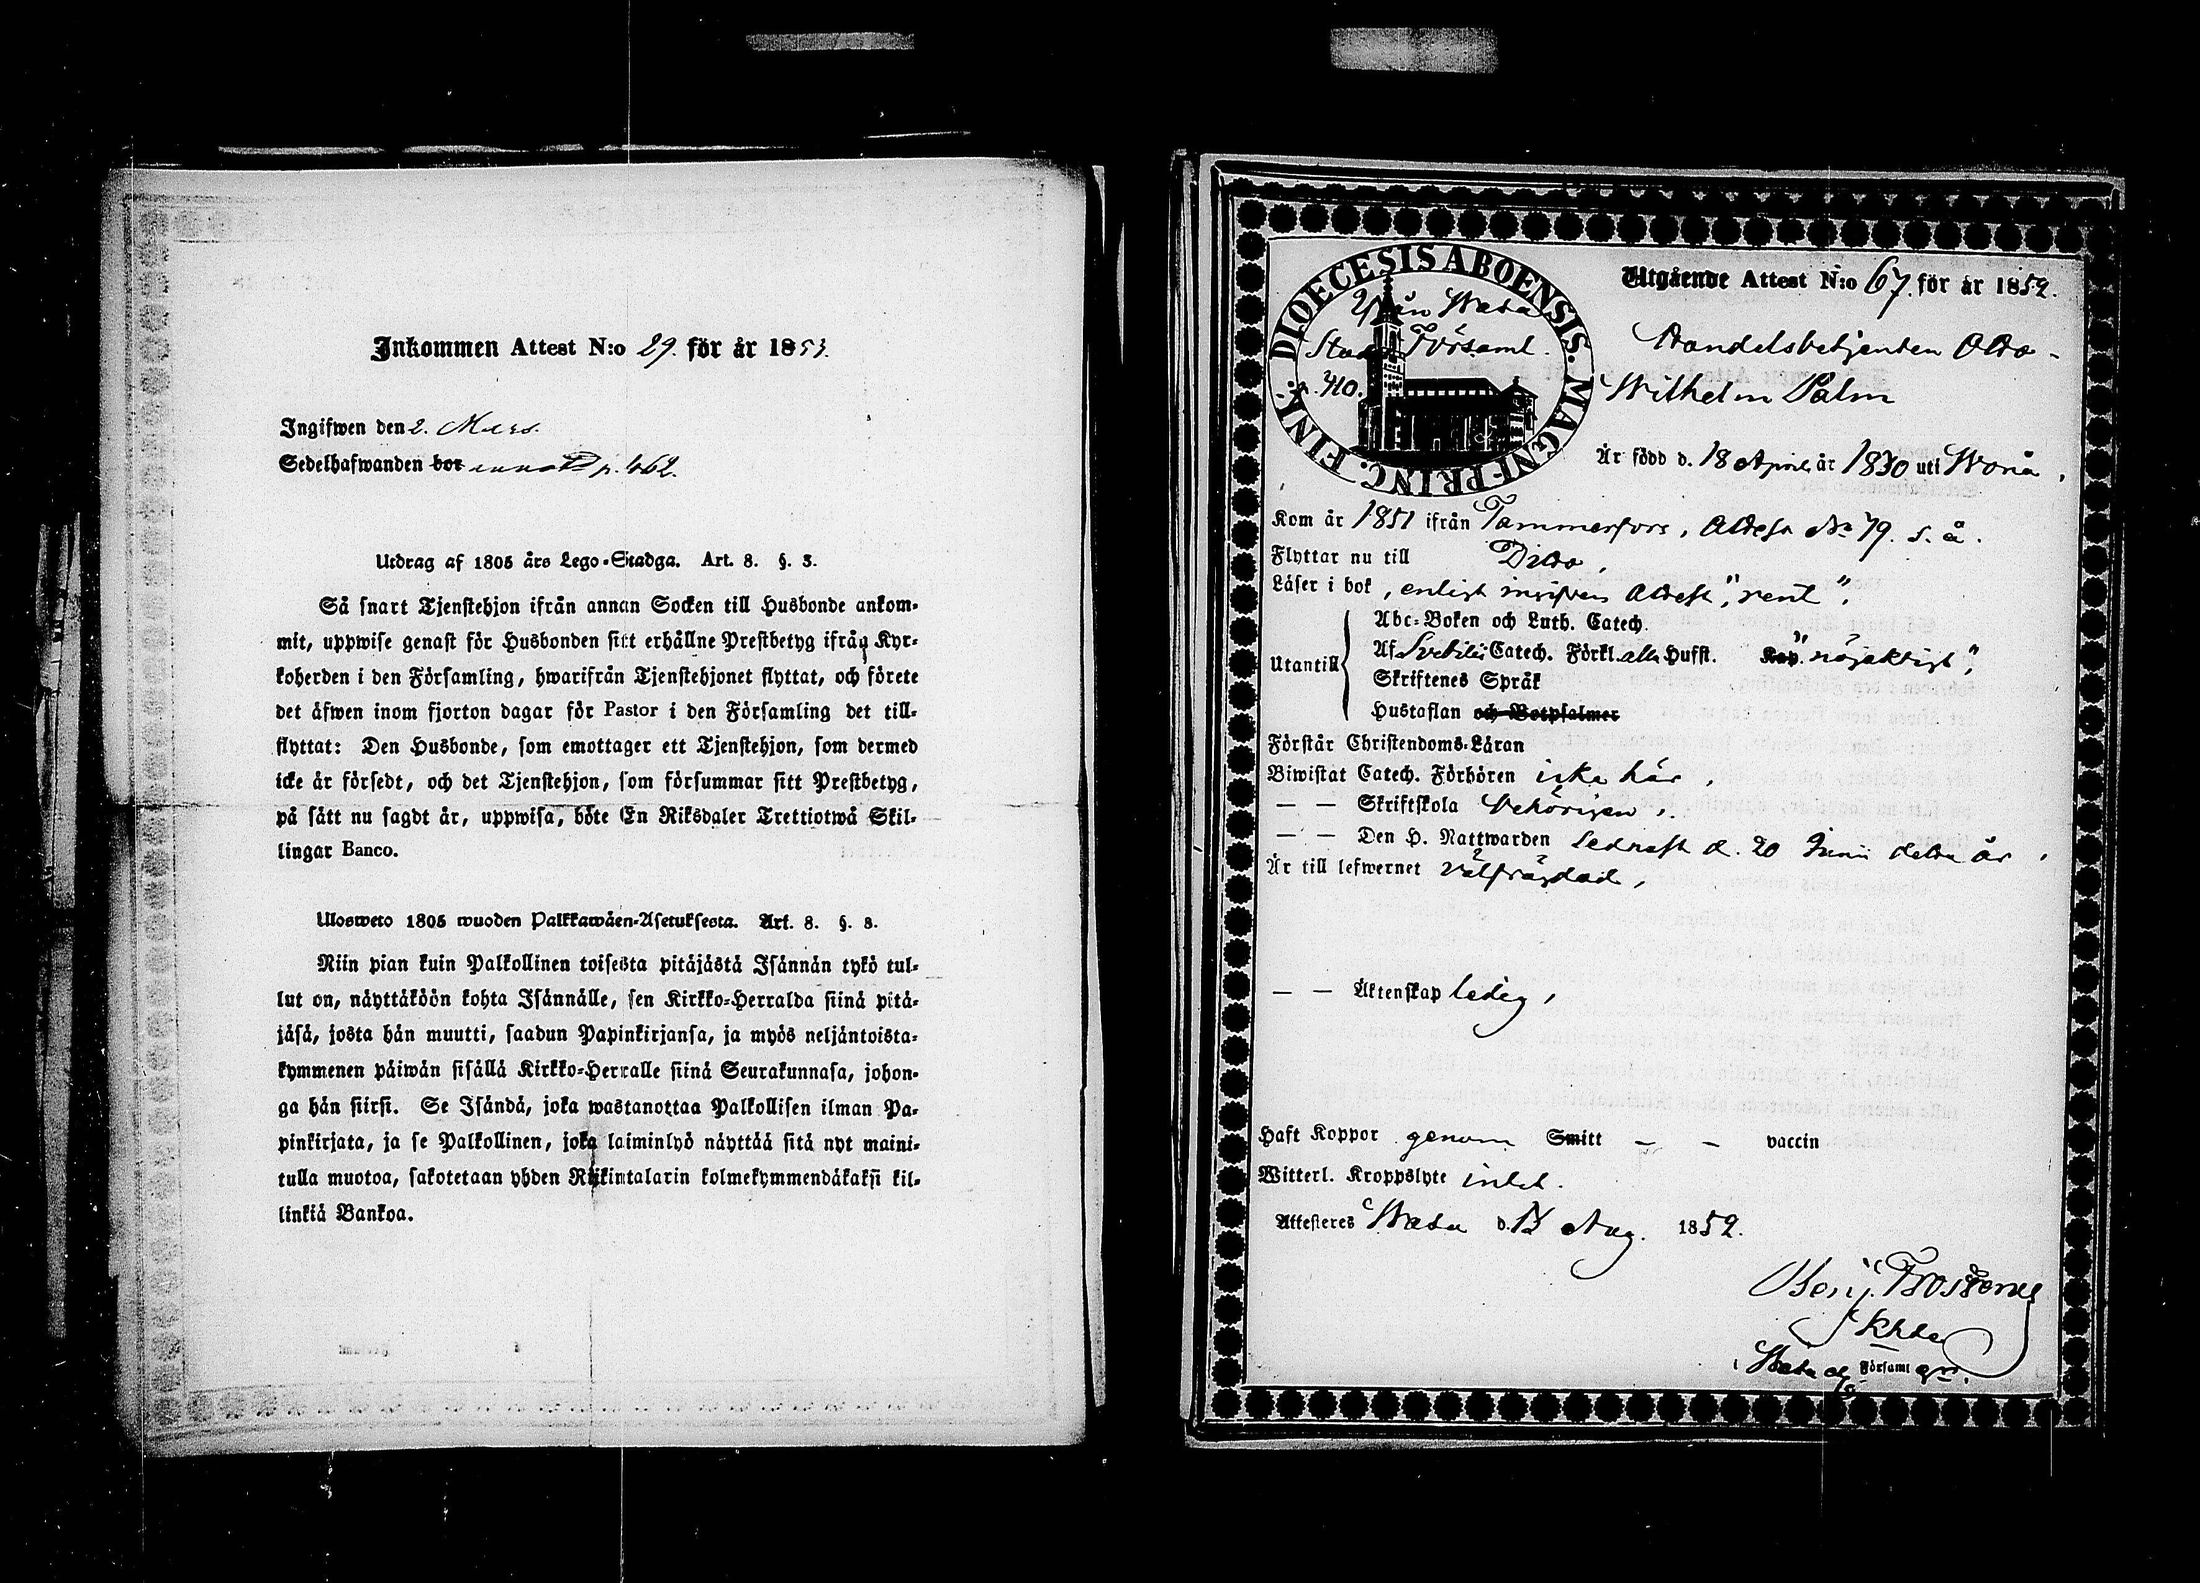 Inkommen Attest N:o 29. för år 1853.
Ingifwen den 2. Mars.
Sedelhafwanden bor p. 462.
Utdrag af 1805 års Lego-Stadga. Art. 8. §. 3.
Så snart Tjenstehjon ifrån annan Socken till Husbonde ankom-
mit, uppwise genast för Husbonden sitt erhållne Prestbetyg ifrån Kyr-
koherden i den Församling, hwarifrån Tjenstehjonet flyttat, och förete
det äfwen inom fjorton dagar för Pastor i den Församling det till-
flyttat: Den Husbonde, som emottager ett Tjenstehjon, som dermed
icke är försedt, och det Tjenstehjon, som försummar sitt Prestbetyg,
på sätt nu sagdt är, uppwisa, böte En Riksdaler Trettiotwå Skil-
lingar Banco.
Ulosweto 1805 wuoden Palkkawäen-Asetuksesta. Art. 8. §. 3.
Niin pian kuin Palkollinen toisesta pitäjästä Isännän tykö tul-
lut on, näyttäköön kohta Isännälle, sen Kirkko-Herralda siinä pitä-
jäsä, josta hän muutti, saadun Papinkirjansa, ja myös neljäntoista-
kymmenen päiwän sisällä Kirkko-Herralle siinä Seurakunnasa, johon-
ga hän siirsi. Se Isändä, joka wastanottaa Palkollisen ilman Pa-
pinkirjata, ja se Palkollinen, joka laiminlyö näyttää sitä nyt maini-
tulla muotoa, sakotetaan yhden Riikintalarin kolmekymmendäkaksi kil-
linkiä Bankoa.
DIOECESIS ABOENSIS. MAGNI PRINC. FINK.
Ifrån Wasa
Stads Församl.
p. 410.
Utgående Attest N:o 67. för år 1852.
Handelsbetjenten Otto
Wilhelm Palm
Är född d. 18 April år 1830 uti Wörå,
Kom år 1851 ifrån Tammerfors, Attest No 79. s. å.
Flyttar nu till Ditto,
Läser i bok, enligt ingifven Attest, "rent",
Utantill
Abc-Boken och Luth. Catech.
Af Svebilii Catech. Förkl. alla Hufst. Kap. "nöjaktigt",
Skriftenes Språk
Hustaflan och Botpsalmer
Förstår Christendoms-Läran
Biwistat Catech. Förhören icke här,
— — Skriftskola behörigen,
— — Den H. Nattwarden sednast d. 20 Junii detta år,
Är till lefwernet välfrägdad,
— — Äktenskap ledig,
Haft Koppor genom Smitt — — vaccin
Witterl. Kroppslyte intet.
Attesteres Wasa d. 13 Aug. 1852.
Benj. Frosterus
Khde
i Wasa Församl